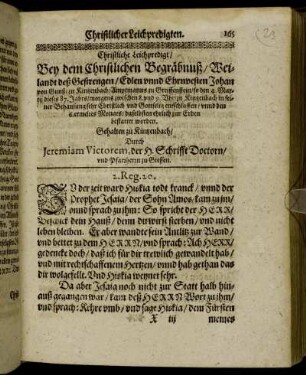 Christlicher Leichpredigten. 165
Christliche Leichpredigt/
Bey dem Christlichen Begräbnuß/ Wei-
landt deß Gestrengen/ Edlen vnnd Ehrnvesten Johan
von
zwischen 8. vnd 9. Vhr zu Kintzenbach in sei-
ner Behausung sehr Christlich vnd entschlaffen/ vnnd den
Monats/ daselbsten ehrlich zur Erden
bestattet worden.
Gehalten zu Kintzenbach/
Durch
Jeremiam Victorem, der H. Schrifft Doctorn/
vnd Pfarrherrn zu Giessen.
2. Reg. 20.
ZV der zeit ward Hiskia todt kranck/ vnnd der
Prophet Jesaia/ der Sohn Amos/ kam zu jm/
vnnd sprach zu jhm: So spricht der HERR/
Beschick dein Hauß/ denn du wirst sterben/ vnd nicht
leben bleiben. Er aber wandte sein Antlitz zur Wand/
vnd bettet zu dem HERRN/ vnd sprach: Ach HERR/
gedencke doch/ daß ich für dir trewlich gewandelt hab/
vnd mit rechtschaffenem Hertzen/ vnd hab gethan das
dir wolgefelle. Vnd Hiskia weynet sehr.
Da aber Jesaia noch nicht zur Statt halb hin-
auß gegangen war/ kam deß HERRN Wort zu jhm/
vnd sprach: Kehre vmb/ vnd sage Hiskia/ dem Fürsten
X iij meines